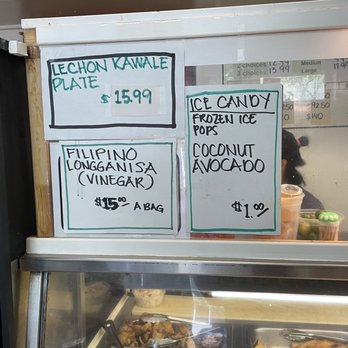 LECHON KAWALE
PLATE
$15.99
FILIPINO
LONGGANISA
(VINEGAR)
$15.00 A BAG
ICE CANDY
FROZEN ICE
POPS
COCONUT
AVOCADO
$1.00/
2 choices
Medium
3 choices 13.99 Large